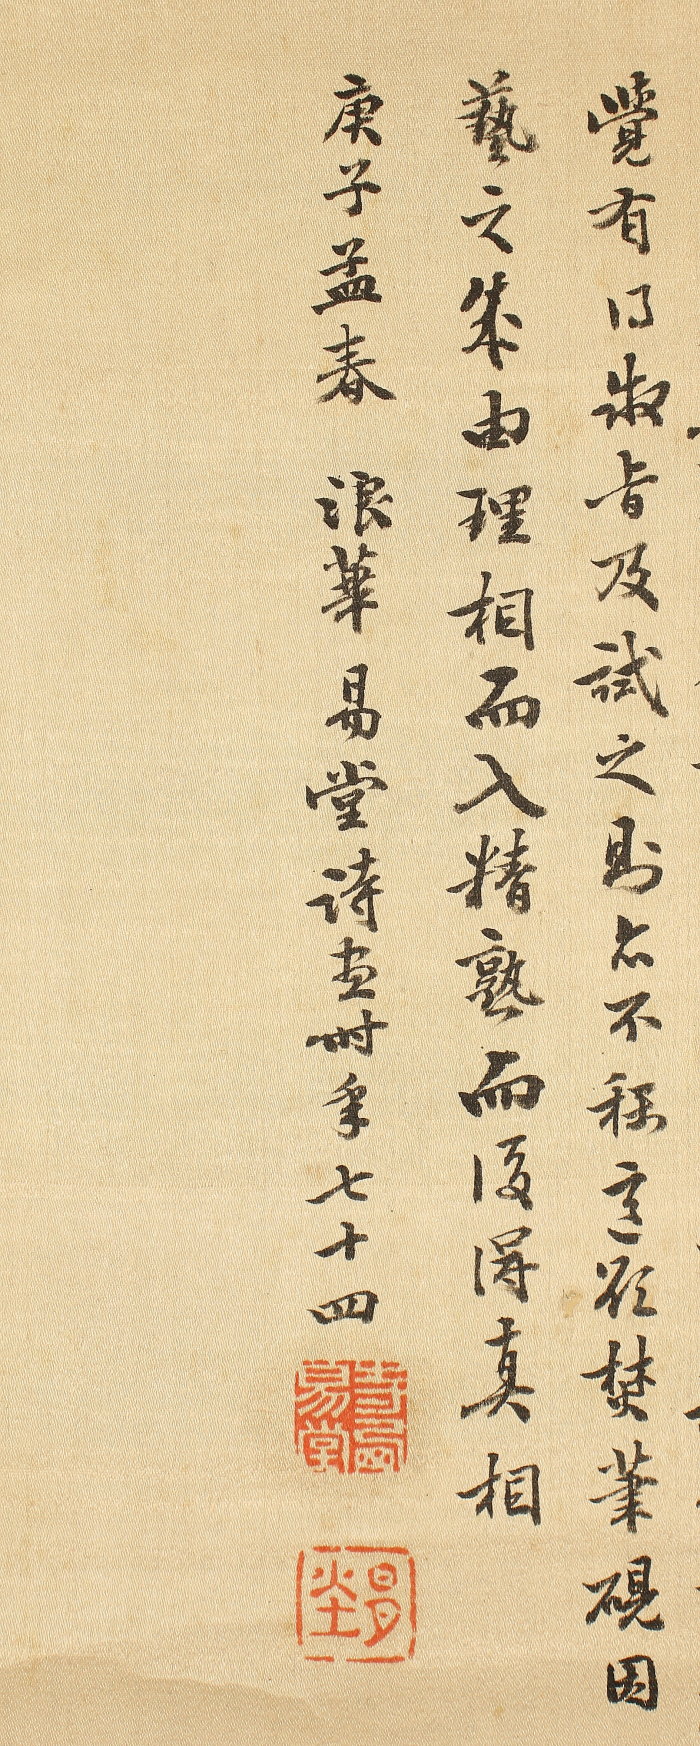 覺有旨及試之則亦不称意欲焚筆硯因
藝之成由理相而入精熟而後得真相
庚子孟春 浪華易堂詩畫時年七十四
易堂